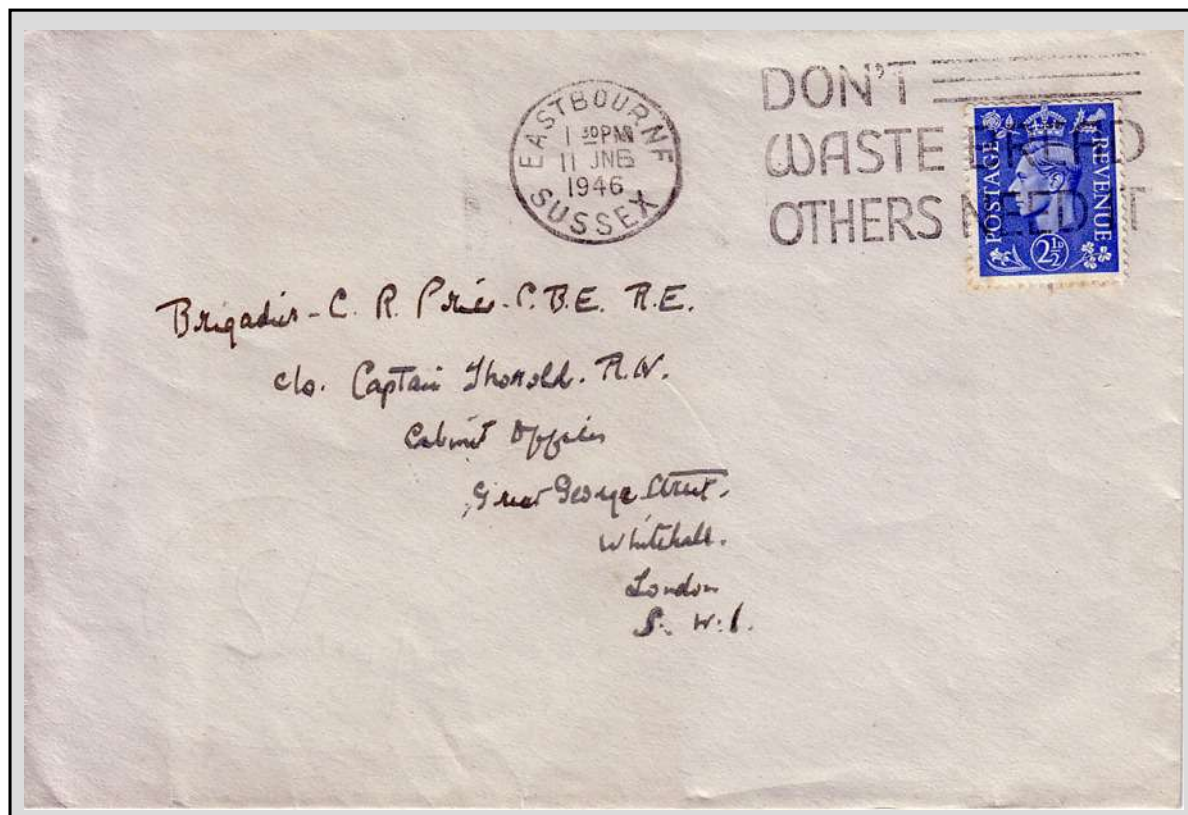 EASTBOURNE
1 30PM
11 JNE
1946
SUSSEX
DON'T
WASTE BREAD
OTHERS NEED IT
POSTAGE REVENUE
2½D
Brigadier - C. R. Price. C.B.E. R.E.
c/o. Captain Thorold. R.N.
Cabinet Offices
Great George Street.
Whitehall.
London
S. W. 1.